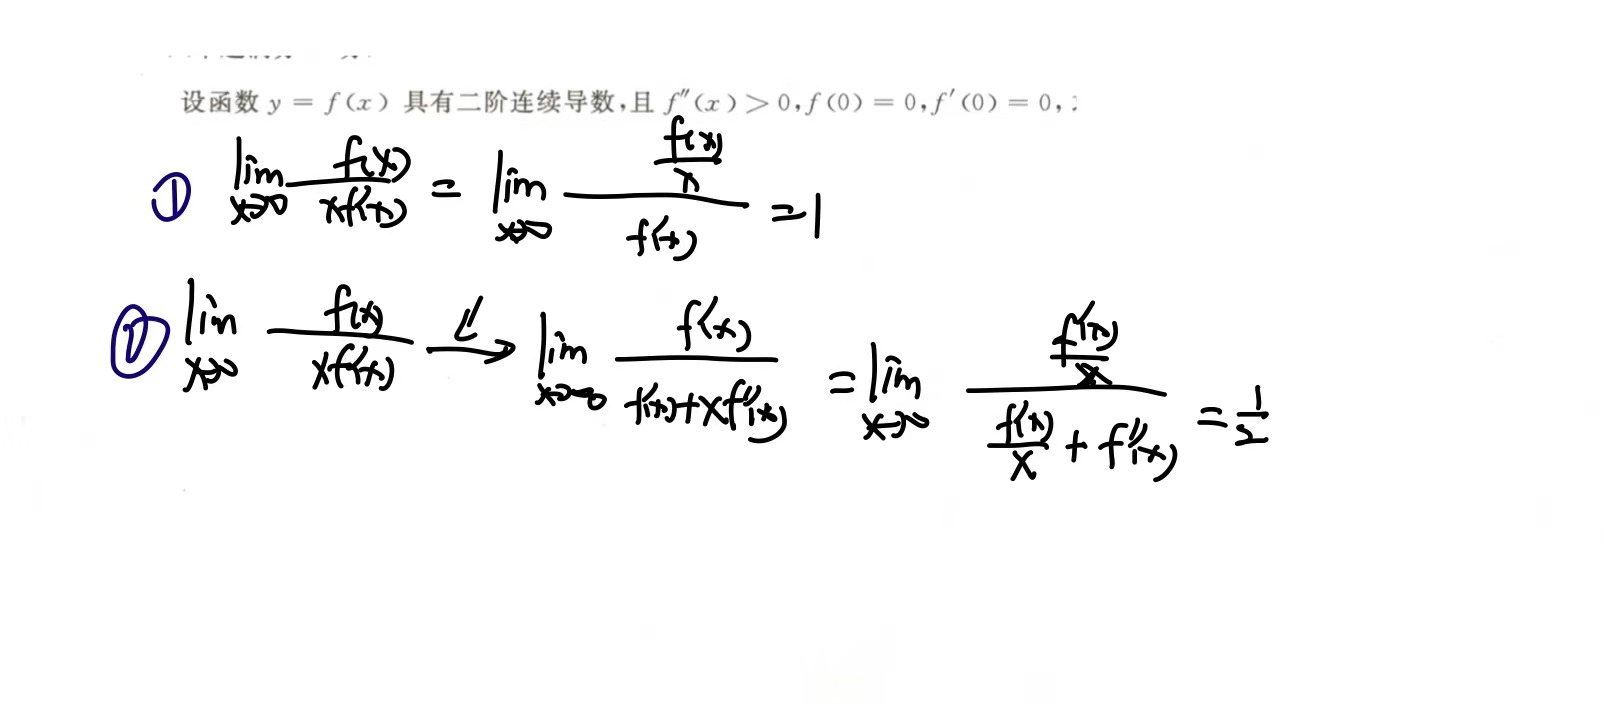 设函数 y = f(x) 具有二阶连续导数,且 f″(x) > 0, f(0) = 0, f′(0) = 0,
① lim x→0 f(x)/(xf′(x)) = lim x→0 (f(x)/x)/f′(x) = 1
② lim x→0 f(x)/(xf′(x)) L→ lim x→0 f′(x)/(f′(x)+xf″(x)) = lim x→0 (f′(x)/x)/(f′(x)/x + f″(x)) = 1/2